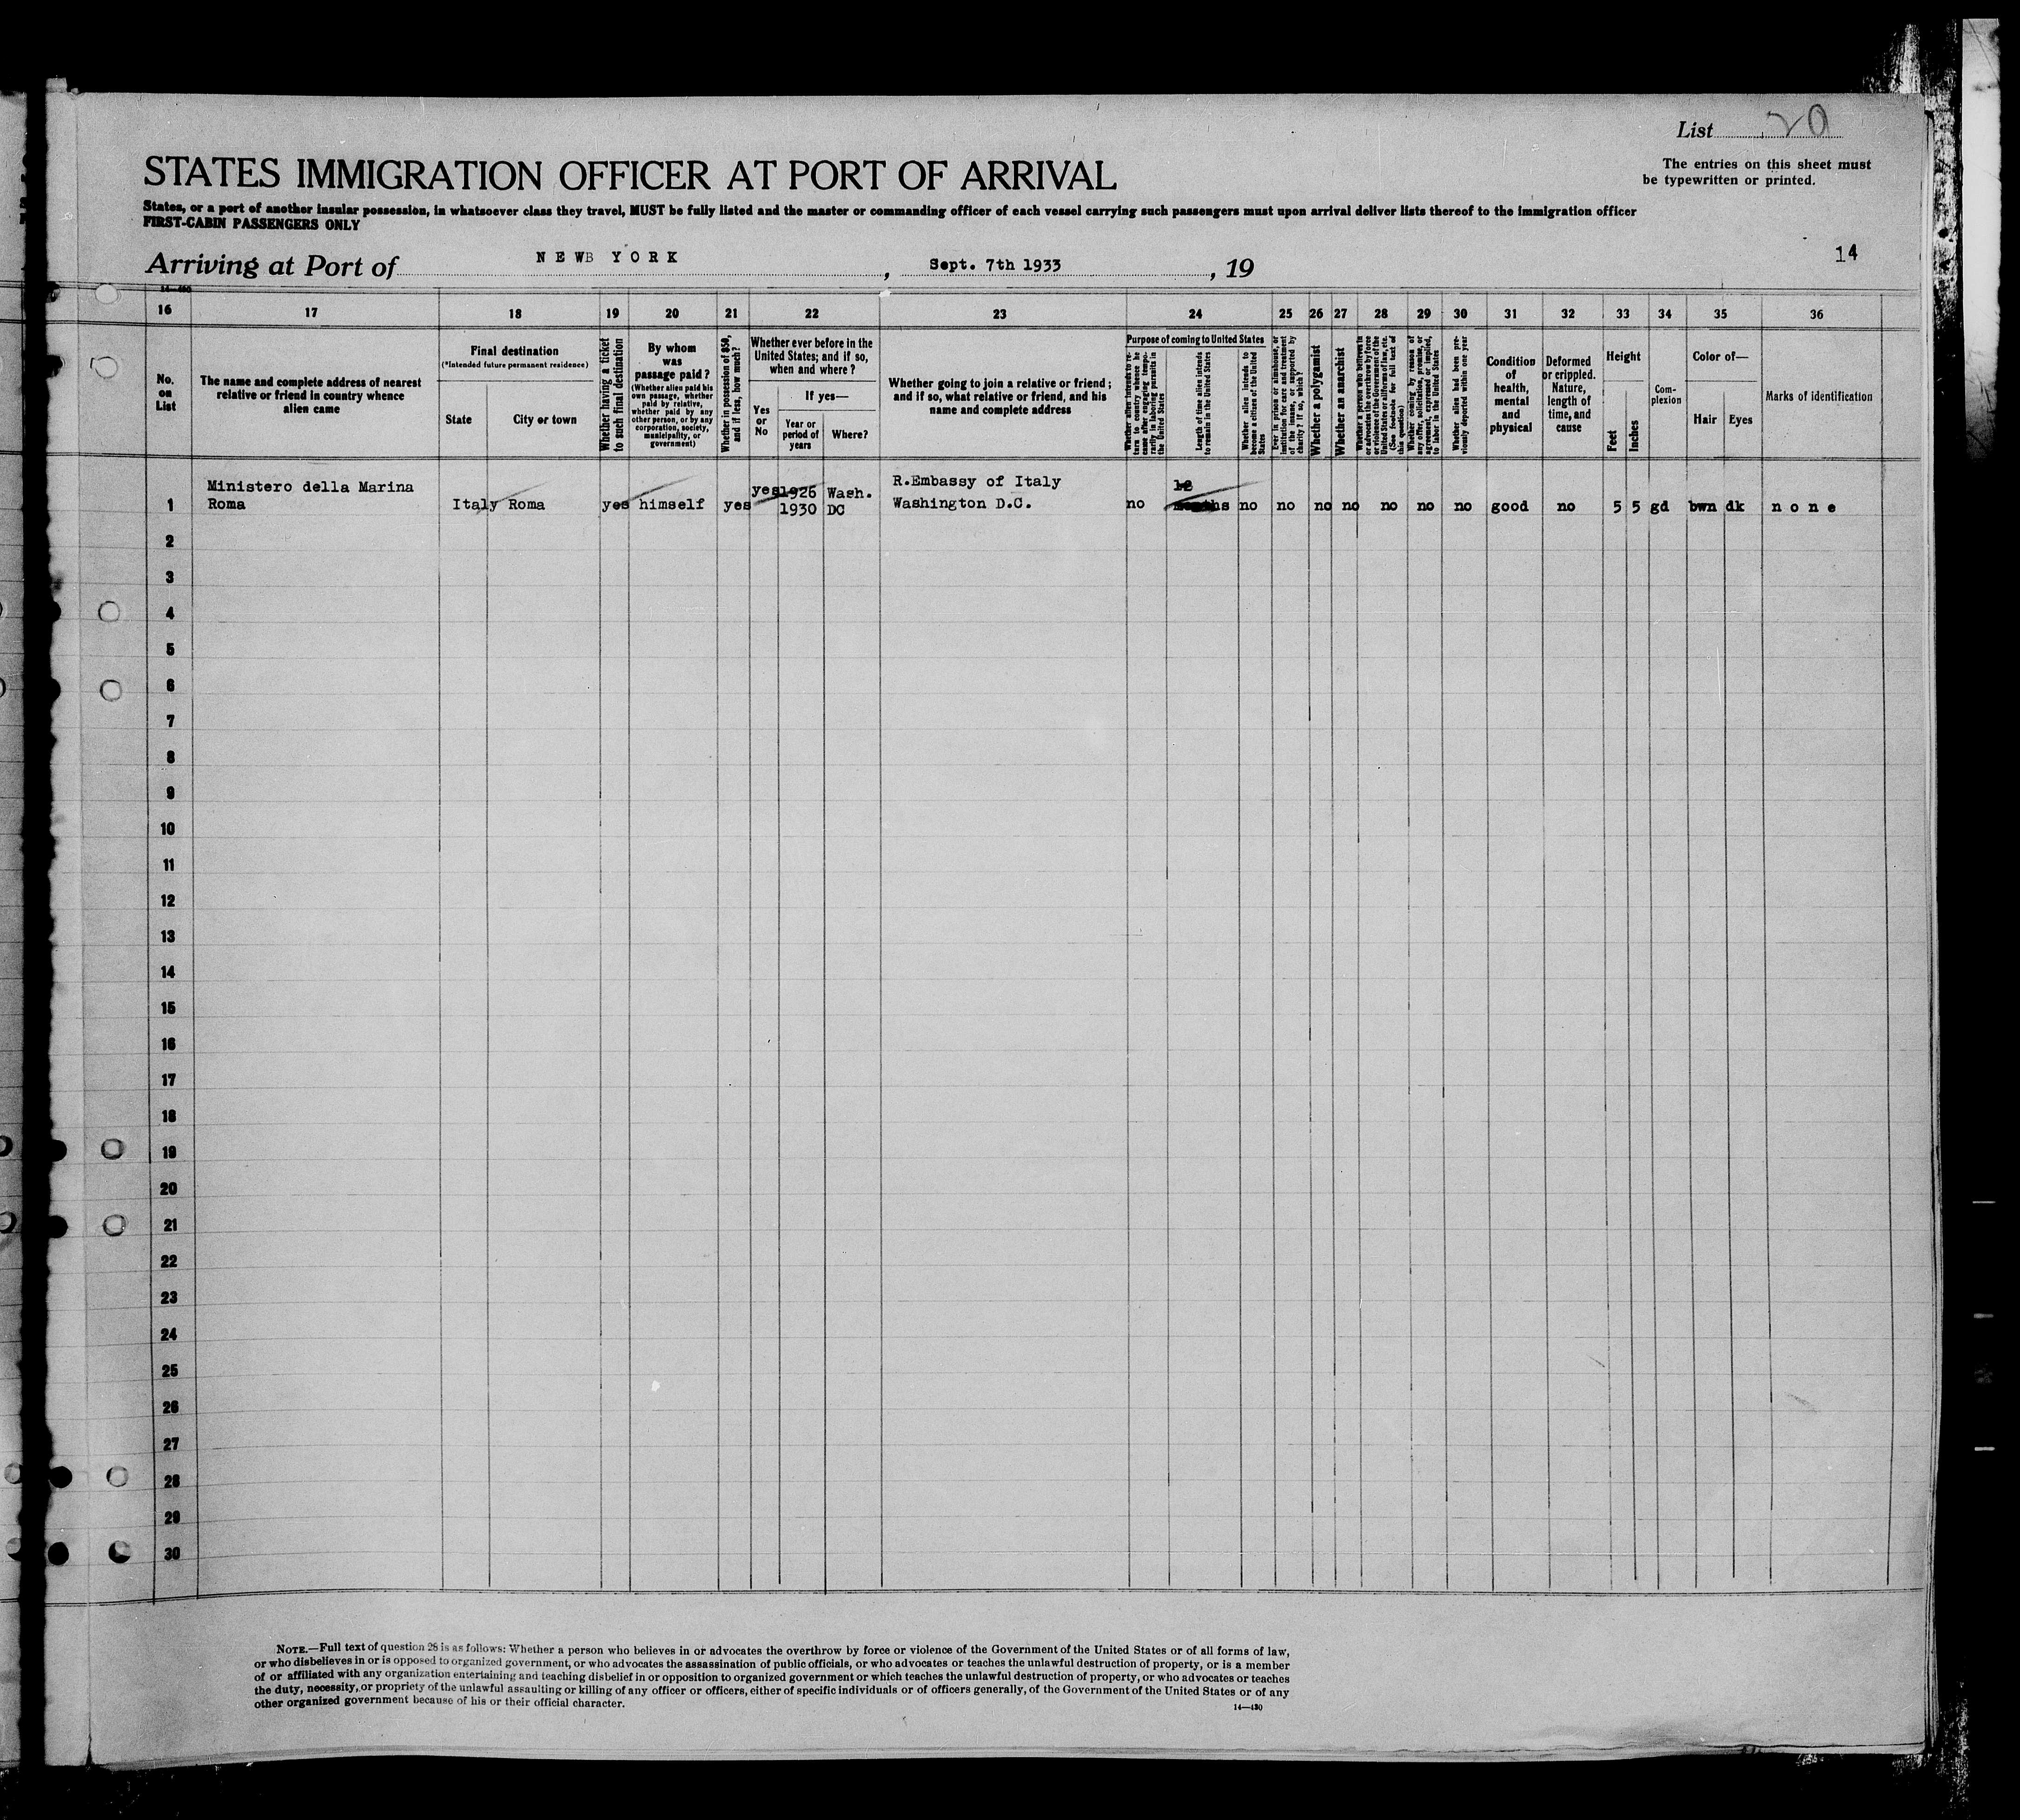 List 20
STATES IMMIGRATION OFFICER AT PORT OF ARRIVAL
The entries on this sheet must
be typewritten or printed.
States, or a port of another insular possession, in whatsoever class they travel, MUST be fully listed and the master or commanding officer of each vessel carrying such passengers must upon arrival deliver lists thereof to the immigration officer
FIRST-CABIN PASSENGERS ONLY
Arriving at Port of NEW YORK, Sept. 7th 1933, 19
14
16 17 18 19 20 21 22 23 24 25 26 27 28 29 30 31 32 33 34 35 36
No.
on
List
The name and complete address of nearest
relative or friend in country whence
alien came
Final destination
(*Intended future permanent residence)
State
City or town
Whether having a ticket
to such final destination
By whom
was
passage paid?
(Whether alien paid his
own passage, whether
paid by relative,
whether paid by any
other person, or by any
corporation, society,
municipality, or
government)
Whether in possession of $50,
and if less, how much?
Whether ever before in the
United States; and if so,
when and where?
Yes
or
No
If yes—
Year or
period of
years
Where?
Whether going to join a relative or friend;
and if so, what relative or friend, and his
name and complete address
Purpose of coming to United States
Whether alien intends to re-
turn to country whence he
came after engaging tempo-
rarily in laboring pursuits in
the United States
Length of time alien intends
to remain in the United States
Whether alien intends to
become a citizen of the United
States
Ever in prison or almshouse, or
institution for care and treatment
of the insane, or supported by
charity? If so, which?
Whether a polygamist
Whether an anarchist
Whether a person who believes in
or advocates the overthrow by force
or violence of the Government of the
United States or all forms of law, etc.
(See footnote for full text of
this question)
Whether coming by reason of
any offer, solicitation, promise, or
agreement, expressed or implied,
to labor in the United States
Whether alien had been pre-
viously deported within one year
Condition
of
health,
mental
and
physical
Deformed
or crippled.
Nature,
length of
time, and
cause
Height
Feet
Inches
Com-
plexion
Color of—
Hair
Eyes
Marks of identification
Ministero della Marina yes 1926 Wash. R.Embassy of Italy 12
1 Roma Italy Roma yes himself yes 1930 DC Washington D.C. no months no no no no no no no good no 5 5 gd bwn dk none
2
3
4
5
6
7
8
9
10
11
12
13
14
15
16
17
18
19
20
21
22
23
24
25
26
27
28
29
30
NOTE.—Full text of question 28 is as follows: Whether a person who believes in or advocates the overthrow by force or violence of the Government of the United States or of all forms of law,
or who disbelieves in or is opposed to organized government, or who advocates the assassination of public officials, or who advocates or teaches the unlawful destruction of property, or is a member
of or affiliated with any organization entertaining and teaching disbelief in or opposition to organized government or which teaches the unlawful destruction of property, or who advocates or teaches
the duty, necessity, or propriety of the unlawful assaulting or killing of any officer or officers, either of specific individuals or of officers generally, of the Government of the United States or of any
other organized government because of his or their official character.
14—430